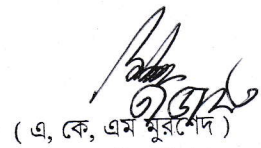 ( এ, কে, এম মুরশেদ )